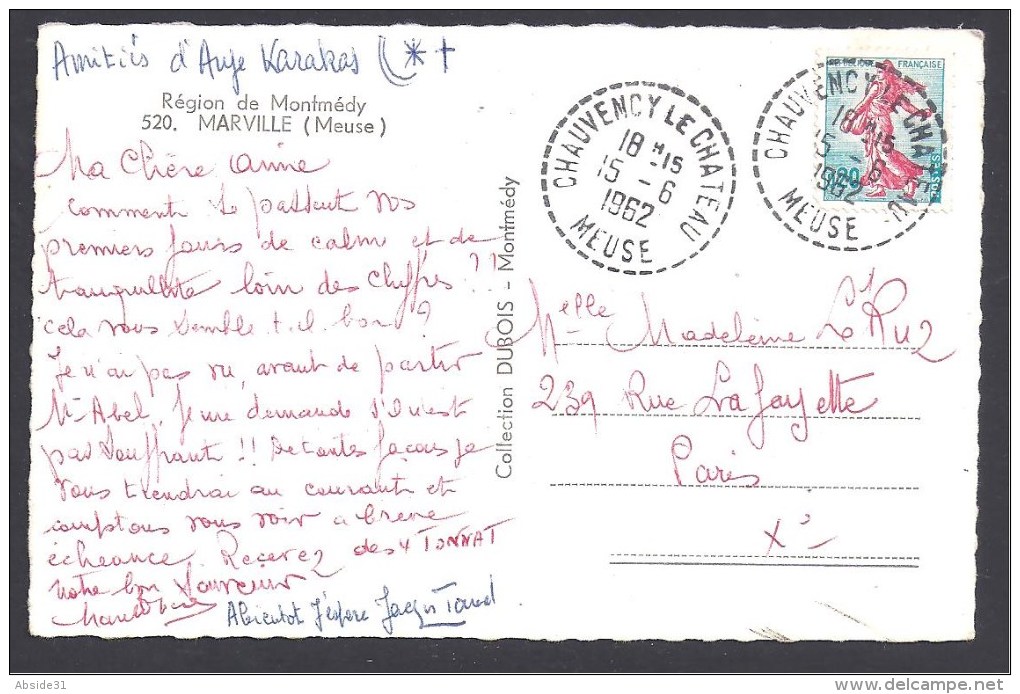 Amitiés d'Ange Karakas
Région de Montmédy
520. MARVILLE (Meuse)
Ma Chère Amie
comment se passent vos
premiers jours de calme et de
tranquillité loin des chiffres !!
cela vous semble t-il bon ?
Je n'ai pas vu, avant de partir
Mr Abel, je me demande s'il n'est
pas souffrant !! De toutes façons je
vous tiendrai au courant et
comptons vous voir à brève
échéance. Recevez des 4 TONNAT
notre bon Souvenir
Abientot j'éspère Jacques
Collection DUBOIS - Montmédy
CHAUVENCY LE CHATEAU
18 H 15
15 - 6
1962
MEUSE
RÉPUBLIQUE FRANÇAISE
0,20
POSTES
CHAUVENCY LE CHATEAU
18 H 15
15 - 6
1962
MEUSE
Melle Madeleine Le Ruz
239 Rue Lafayette
Paris
Xe
Abside31
www.delcampe.net